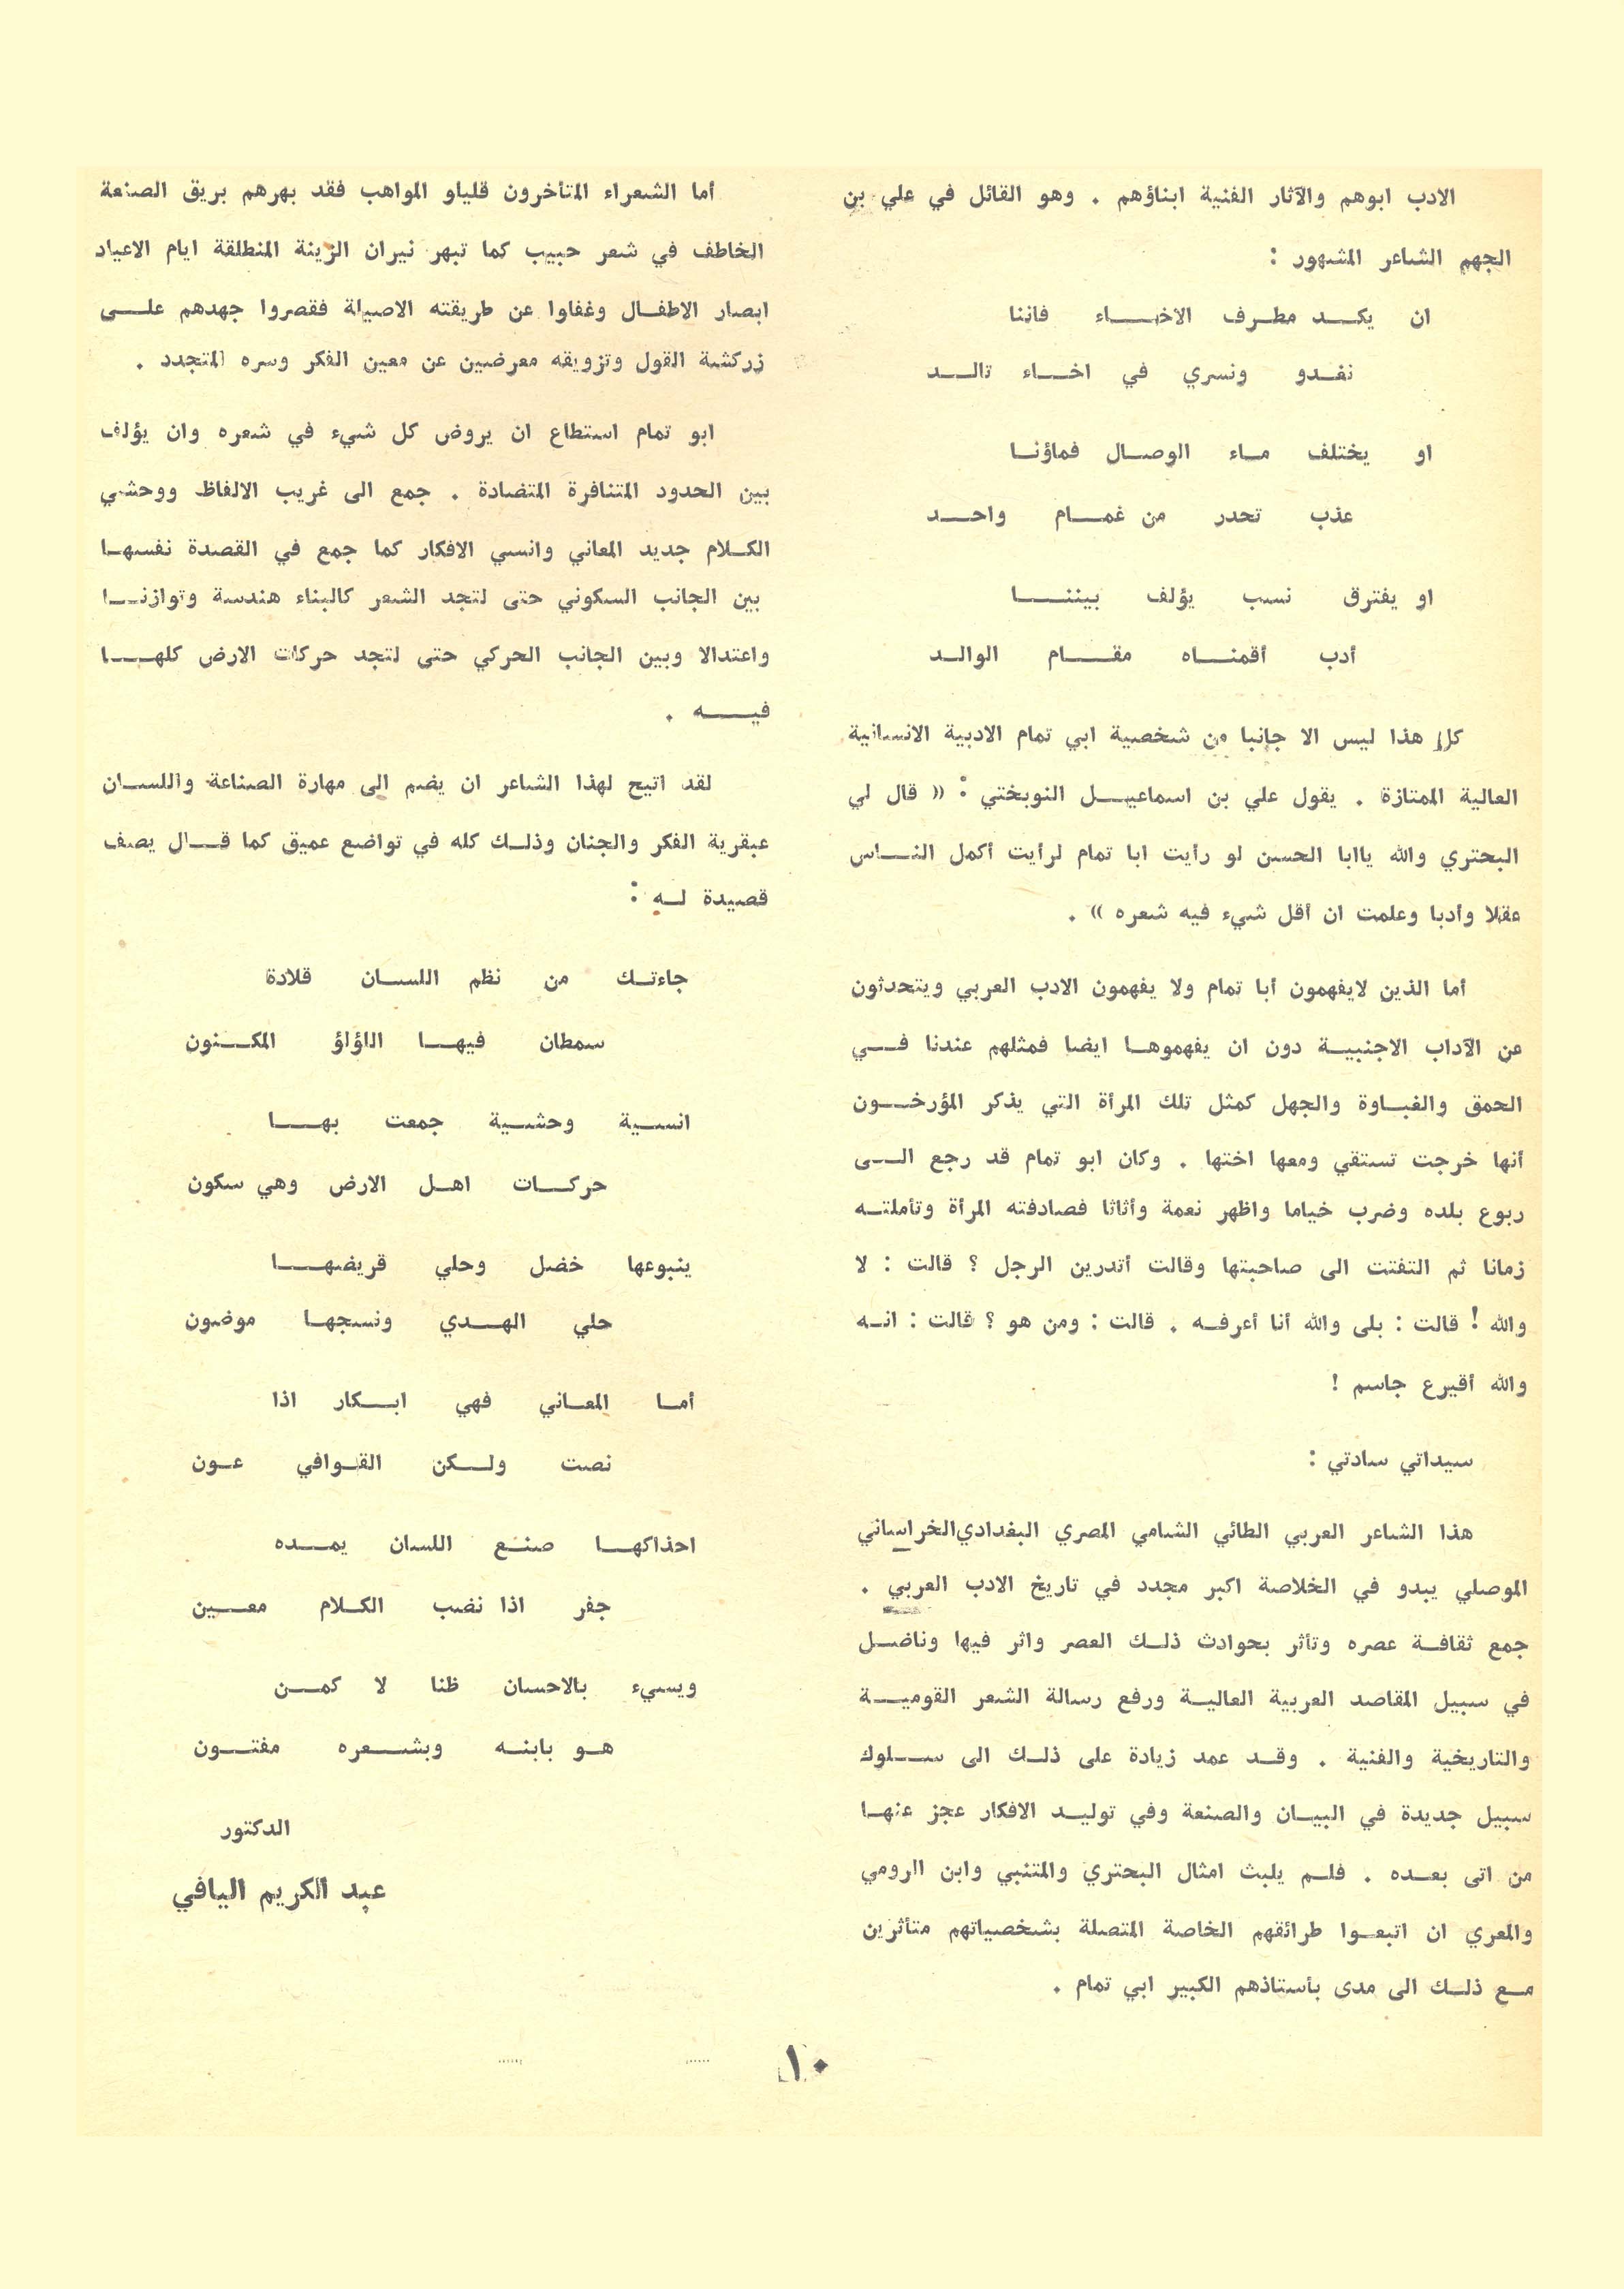 الادب ابوهم والآثار الفنية ابناؤهم . وهو القائل في علي بن
الجهم الشاعر المشهور :
ان يكـــد مطـرف الاخـــاء فاننا
نغـدو ونسري في اخـــاء تالـــد
او يختلف مـاء الوصـال فماؤنـا
عذب تحدر من غمـــام واحـــد
او يفترق نسب يؤلف بيننـــا
أدب أقمنـــاه مقـــام الوالـد
كل هذا ليس الا جانبا من شخصية ابي تمام الادبية الانسانية
العالية الممتازة . يقول علي بن اسماعيـــل النوبختي : « قال لي
البحتري والله ياابا الحسن لو رأيت ابا تمام لرأيت أكمل النـــاس
عقلا وأدبا وعلمت ان أقل شيء فيه شعره » .
أما الذين لايفهمون أبا تمام ولا يفهمون الادب العربي ويتحدثون
عن الآداب الاجنبيـة دون ان يفهموهـا ايضا فمثلهم عندنا فـــي
الحمق والغبـاوة والجهل كمثل تلك المرأة التي يذكر المؤرخـــون
أنها خرجت تستقي ومعها اختها . وكان ابو تمام قد رجع الـــى
ربوع بلده وضرب خياما واظهر نعمة وأثاثا فصادفته المرأة وتأملتـه
زمانا ثم التفتت الى صاحبتها وقالت أتدرين الرجل ؟ قالت : لا
والله ! قالت : بلى والله أنا أعرفـه . قالت : ومن هو ؟ قالت : انـه
والله أقيرع جاسم !
سيداتي سادتي :
هذا الشاعر العربي الطائي الشامي المصري البغدادي الخراساني
الموصلي يبدو في الخلاصة اكبر مجدد في تاريخ الادب العربي .
جمع ثقافـة عصره وتأثر بحوادث ذلـك العصر واثر فيها وناضـل
في سبيل المقاصد العربية العاليـة ورفع رسالة الشعر القوميـــة
والتاريخية والفنية . وقـد عمد زيادة على ذلـك الى ســلوك
سبيل جديدة في البيـان والصنعة وفي توليـد الافكار عجز عنهـا
من اتى بعـده . فلـم يلبث امثال البحتري والمتنبي وابن الرومي
والمعري ان اتبعـوا طرائقهم الخاصة المتصلة بشخصياتهم متأثرين
مـع ذلـك الى مدى بأستاذهم الكبير ابي تمام .
أما الشعراء المتأخرون قلياو المواهب فقد بهرهم بريق الصنعة
الخاطف في شعر حبيب كما تبهر نيران الزينة المنطلقة ايام الاعياد
ابصار الاطفـال وغفاوا عن طريقته الاصيلة فقصروا جهدهم علـــى
زركشة القول وتزويقه معرضين عن معين الفكر وسره المتجدد .
ابو تمام استطاع ان يروض كل شيء في شعره وان يؤلف
بين الحدود المتنافرة المتضادة . جمع الى غريب الالفاظ ووحشي
الكـلام جديد المعاني وانسي الافكار كما جمع في القصدة نفسهـا
بين الجانب السكوني حتى لتجد الشعر كالبناء هندسة وتوازنـــا
واعتدالا وبين الجانب الحركي حتى لتجد حركات الارض كلهـــا
فيـــه .
لقد اتيح لهذا الشاعر ان يضم الى مهارة الصناعة واللسـان
عبقرية الفكر والجنان وذلـك كله في تواضع عميق كما قـــال يصف
قصيدة لـه :
جاءتـك من نظم اللسـان قلادة
سمطان فيهـا اللؤلؤ المكـــنون
انسـية وحشـية جمعت بهـــا
حركـــات اهـل الارض وهي سكون
ينبوعها خضل وحلي قريضهـــا
حلي الهـــدي ونسجهـا موضون
أمـا المعـاني فهي ابـــكار اذا
نصت ولـــكن القـوافي عـون
احذاكهـــا صنـع اللسان يمـــده
جفر اذا نضب الكـلام معـــين
ويسيء بالاحسان ظنا لا كمـــن
هـو بابنـه وبشـــعره مفتـــون
الدكتور
عبد الكريم اليافي
١٠